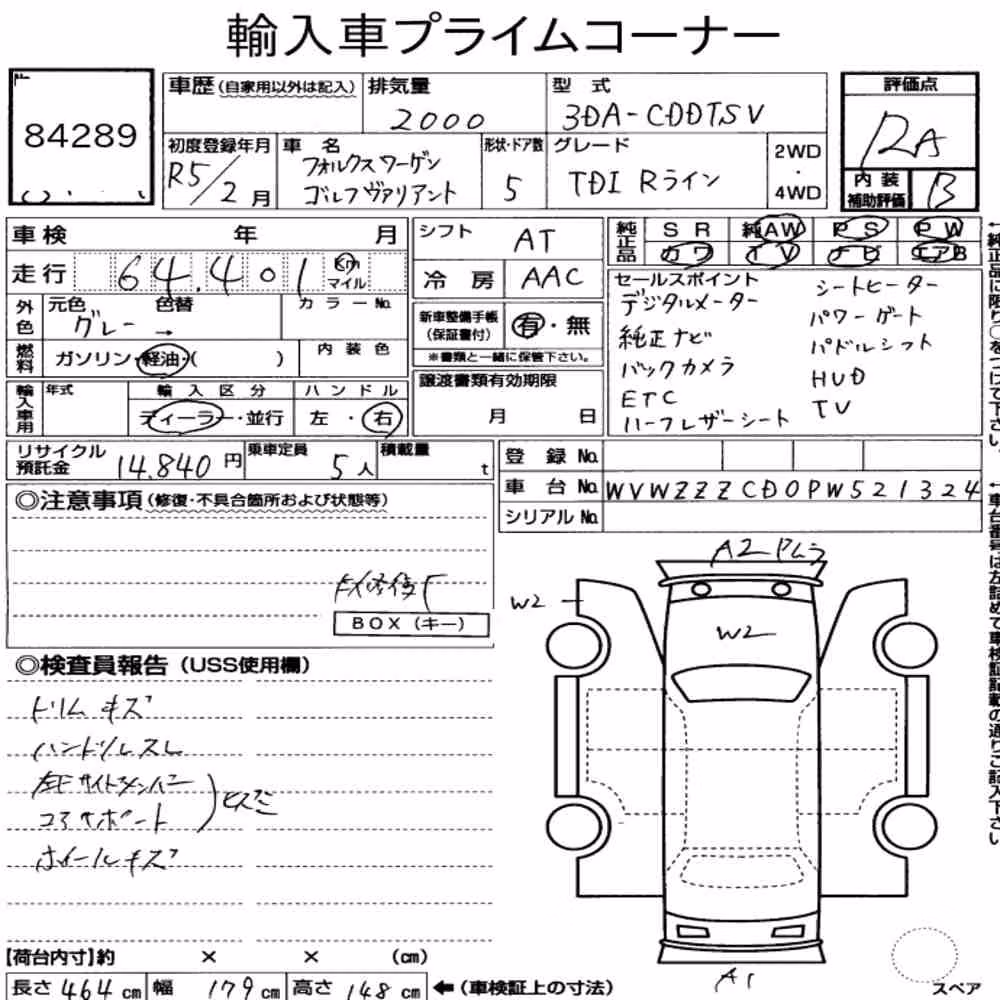 輸入車プライムコーナー
84289
車歴(自家用以外は記入) 排気量 2000 型式 3DA-CDDTSV
初度登録年月 R5/2月 車名 フォルクスワーゲン ゴルフヴァリアント 形状・ドア数 5 グレード TDI Rライン 2WD・4WD
評価点 RA
内装補助評価 B
車検 年 月
走行 64,401 Km マイル
外色 元色 グレー → 色替 カラーNo.
燃料 ガソリン・軽油・( ) 内装色
輸入車用 年式 輸入区分 ディーラー・並行 ハンドル 左・右
リサイクル預託金 14,840円 乗車定員 5人 積載量 t
シフト AT
冷房 AAC
新車整備手帳(保証書付) 有・無
※書類と一緒に保管下さい。
譲渡書類有効期限
月 日
純正品 SR 純AW PS PW
カワ TV ナビ エアB
セールスポイント
デジタルメーター
純正ナビ
バックカメラ
ETC
ハーフレザーシート
シートヒーター
パワーゲート
パドルシフト
HUD
TV
登録No.
車台No. WVWZZZCD0PW521324
シリアルNo.
←純正品に限り○をつけて下さい。
←車台番号は左詰めで車検証記載の通りご記入下さい
◎注意事項(修復・不具合箇所および状態等)
BOX(キー)
◎検査員報告(USS使用欄)
トリムキズ
ハンドルスレ
左Fサイドメンバー
コアサポート
ヒズミ
ホイールキズ
A2 Pムラ
W2
W2
A1
スペア
【荷台内寸】約 × × (cm)
長さ 464 cm 幅 179 cm 高さ 148 cm ←(車検証上の寸法)